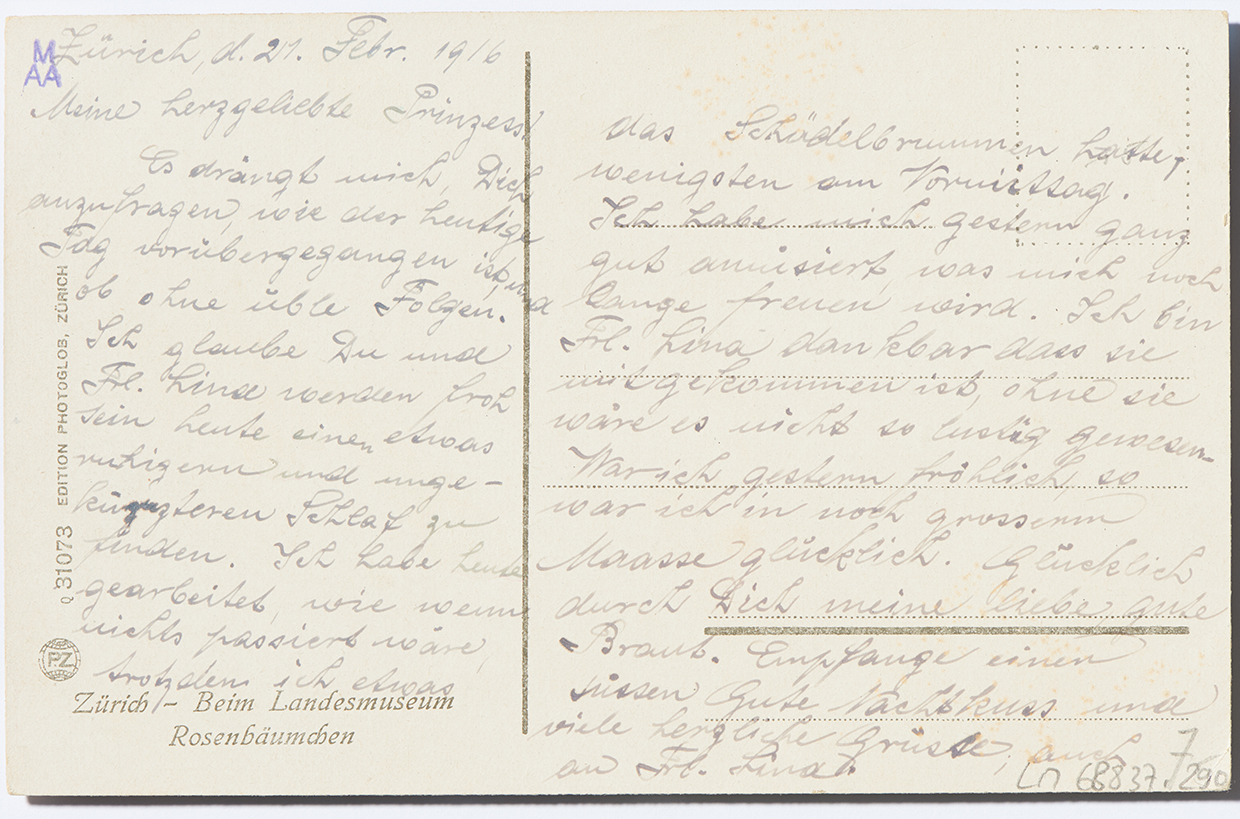 M
AA
Zürich, d. 21. Febr. 1916
Meine herzgeliebte Prinzess!
Es drängt mich, Dich
anzufragen, wie der heutige
Tag vorübergegangen ist, und
ob ohne üble Folgen.
Ich glaube Du und
Frl. Lina werden froh
sein heute einen etwas
ruhigern und unge-
kürzteren Schlaf zu
finden. Ich habe heute
gearbeitet, wie wenn
nichts passiert wäre,
trotzdem ich etwas
das Schädelbrummen hatte,
wenigsten am Vormittag.
Ich habe mich gestern ganz
gut amüsiert, was mich noch
lange freuen wird. Ich bin
Frl. Lina dankbar dass sie
mitgekommen ist, ohne sie
wäre es nicht so lustig gewesen.
War ich gestern fröhlich, so
war ich in noch grosserm
Maasse glücklich. Glücklich
durch Dich meine liebe gute
Braut. Empfange einen
süssen Gute Nachtkuss und
viele herzliche Grüsse, auch
an Frl. Lina.
Q 31073 EDITION PHOTOGLOB, ZÜRICH
PZ
Zürich - Beim Landesmuseum
Rosenbäumchen
LM 68837.290
7